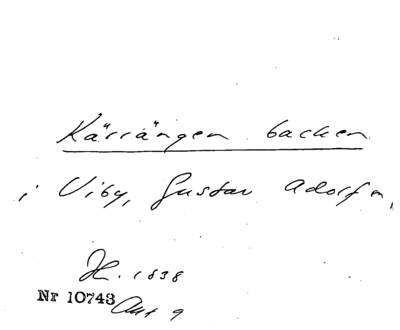 Kärrängen backen
i Viby, Gustav Adolf n,
H. 1838
Nr 10743 Akt 9